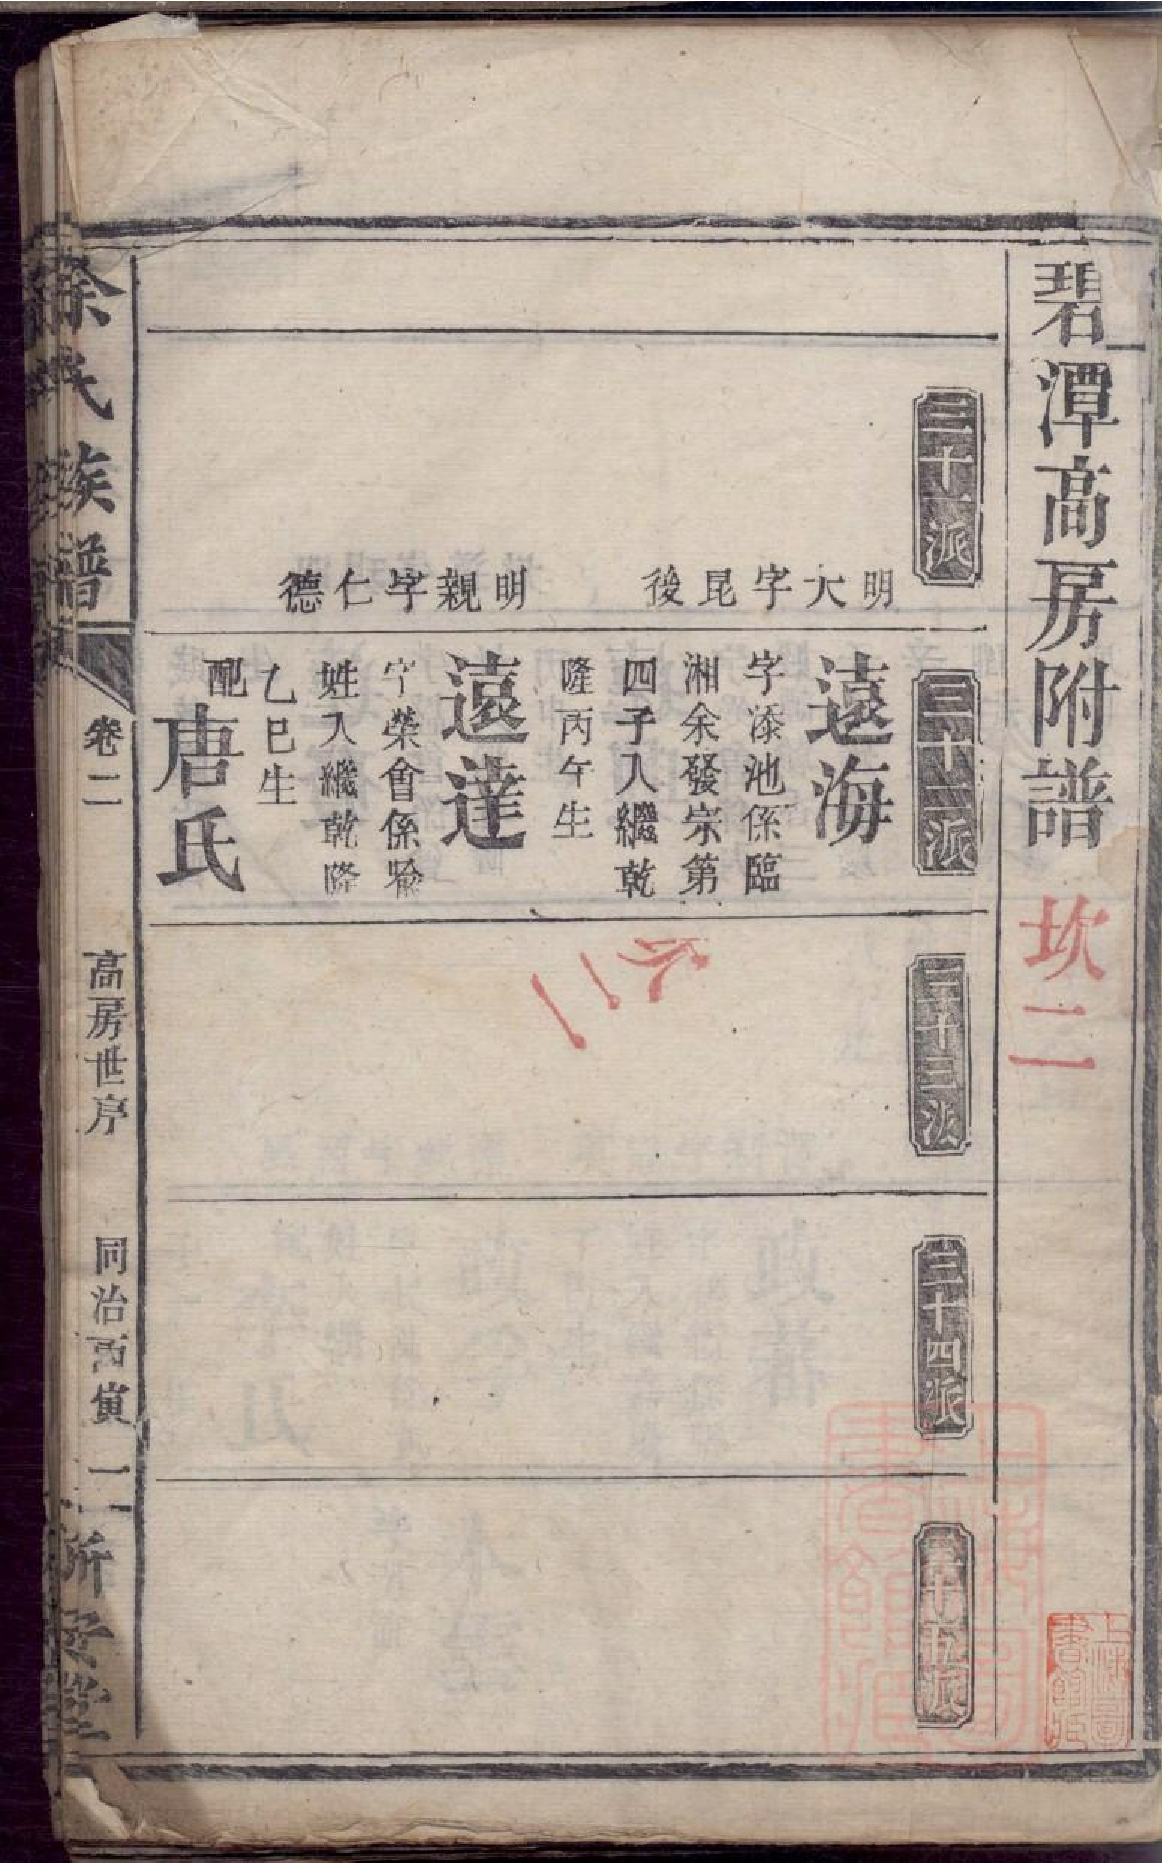 碧潭高房附譜
坎二
三十一派
明大字昆後
明親字仁德
三十二派
遠海
字添池係臨
湘余發宗第
四子入繼乾
隆丙午生
遠達
字榮會係
姓入繼乾隆
乙巳生
配唐氏
三十三派
三十四派
三十五派
上海圖書館藏
上海圖書館藏
余氏族譜
卷二
高房世序
同治丙寅
一
新安堂